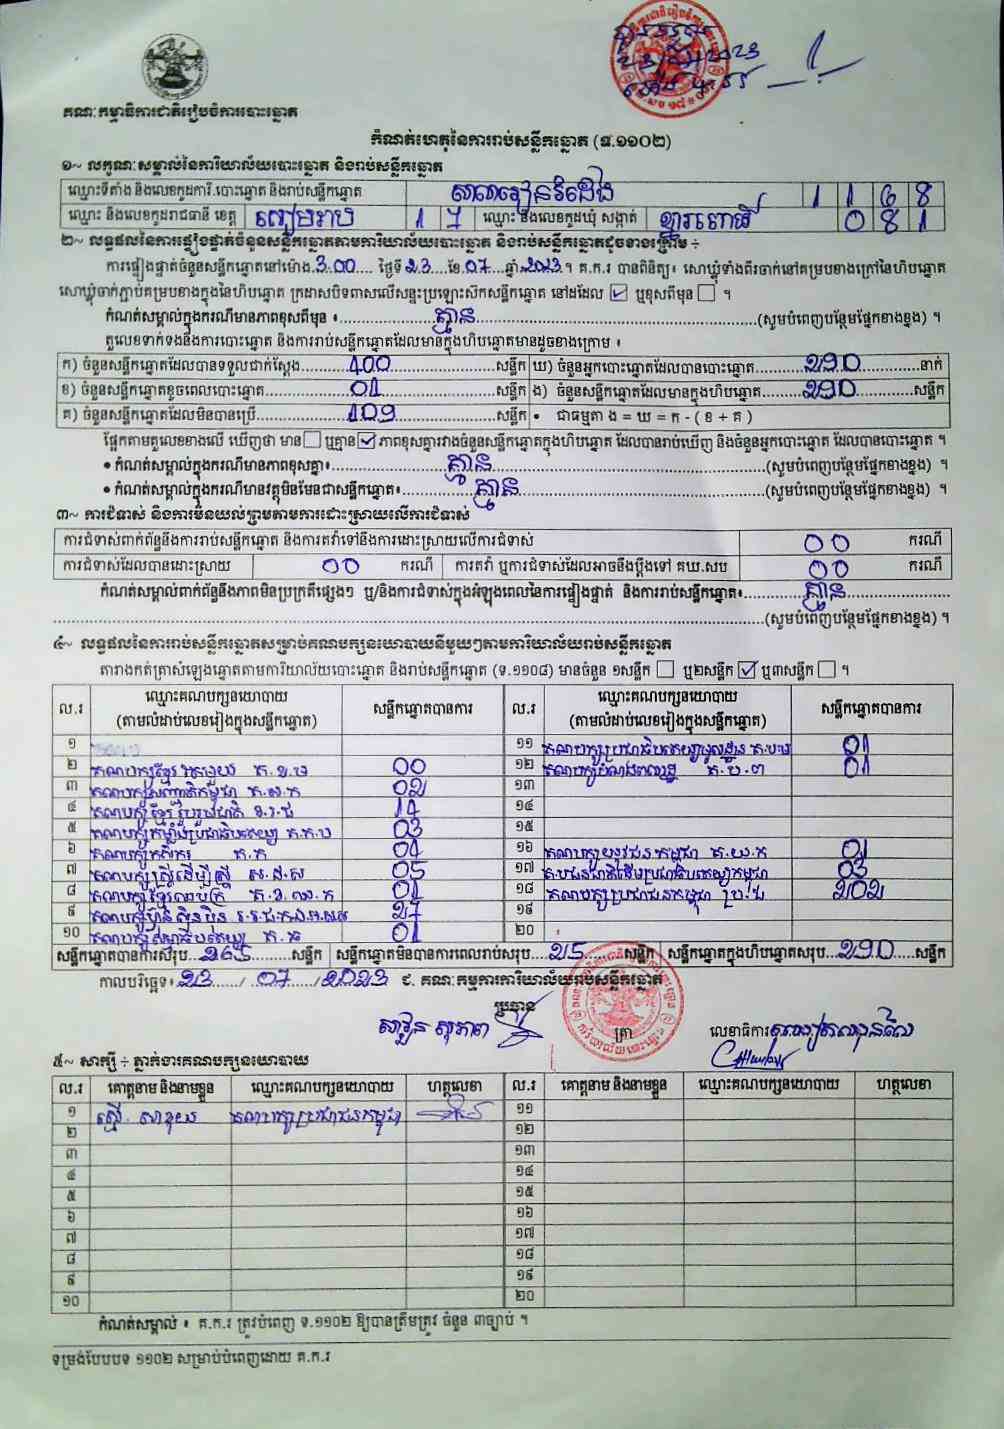 គណៈកម្មាធិការជាតិរៀបចំការបោះឆ្នោត
កំណត់ហេតុនៃការរាប់សន្លឹកឆ្នោត (ទ.១១០២)
១~ លក្ខណៈសម្គាល់នៃការិយាល័យបោះឆ្នោត និងរាប់សន្លឹកឆ្នោត
ឈ្មោះទីតាំង និងលេខកូដការិ.បោះឆ្នោត និងរាប់សន្លឹកឆ្នោត សាលារៀន 1168
ឈ្មោះ និងលេខកូដរាជធានី ខេត្ត សៀមរាប 17 ឈ្មោះ និងលេខកូដឃុំ សង្កាត់ ខ្នារពោធិ៍ 081
២~ លទ្ធផលនៃការផ្ទៀងផ្ទាត់ចំនួនសន្លឹកឆ្នោតតាមការិយាល័យបោះឆ្នោត និងរាប់សន្លឹកឆ្នោតដូចខាងក្រោម ÷
ការផ្ទៀងផ្ទាត់ចំនួនសន្លឹកឆ្នោតនៅម៉ោង 3:00 ថ្ងៃទី 23 ខែ 07 ឆ្នាំ 2023 ។ គ.ក.រ បានពិនិត្យ៖ សោឃ្លុំទាំងពីរចាក់នៅគម្របខាងក្រៅនៃហិបឆ្នោត
សោឃ្លុំចាក់ភ្ជាប់គម្របខាងក្នុងនៃហិបឆ្នោត ក្រដាសបិទពាសលើសន្ទះប្រឡោះស៊កសន្លឹកឆ្នោត នៅដដែល ☑ ឬខុសពីមុន ☐ ។
កំណត់សម្គាល់ក្នុងករណីមានភាពខុសពីមុន ៖ គ្មាន (សូមបំពេញបន្ថែមផ្នែកខាងខ្នង) ។
តួលេខទាក់ទងនឹងការបោះឆ្នោត និងការរាប់សន្លឹកឆ្នោតដែលមានក្នុងហិបឆ្នោតមានដូចខាងក្រោម ៖
ក) ចំនួនសន្លឹកឆ្នោតដែលបានទទួលជាក់ស្តែង 400 សន្លឹក ឃ) ចំនួនអ្នកបោះឆ្នោតដែលបានបោះឆ្នោត 290 នាក់
ខ) ចំនួនសន្លឹកឆ្នោតខូចពេលបោះឆ្នោត 01 សន្លឹក ង) ចំនួនសន្លឹកឆ្នោតដែលមានក្នុងហិបឆ្នោត 290 សន្លឹក
គ) ចំនួនសន្លឹកឆ្នោតដែលមិនបានប្រើ 109 សន្លឹក • ជាធម្មតា ង = ឃ = ក - ( ខ + គ )
ផ្អែកតាមតួលេខខាងលើ ឃើញថា មាន ☐ ឬគ្មាន ☑ ភាពខុសគ្នារវាងចំនួនសន្លឹកឆ្នោតក្នុងហិបឆ្នោត ដែលបានរាប់ឃើញ និងចំនួនអ្នកបោះឆ្នោត ដែលបានបោះឆ្នោត ។
• កំណត់សម្គាល់ក្នុងករណីមានភាពខុសគ្នា៖ គ្មាន (សូមបំពេញបន្ថែមផ្នែកខាងខ្នង) ។
• កំណត់សម្គាល់ក្នុងករណីមានវត្ថុមិនមែនជាសន្លឹកឆ្នោត៖ គ្មាន (សូមបំពេញបន្ថែមផ្នែកខាងខ្នង) ។
៣~ ការជំទាស់ និងការមិនយល់ព្រមតាមការដោះស្រាយលើការជំទាស់
ការជំទាស់ពាក់ព័ន្ធនឹងការរាប់សន្លឹកឆ្នោត និងការតវ៉ាទៅនឹងការដោះស្រាយលើការជំទាស់ 00 ករណី
ការជំទាស់ដែលបានដោះស្រាយ 00 ករណី ការតវ៉ា ឬការជំទាស់ដែលអាចនឹងប្តឹងទៅ គឃ.សប 00 ករណី
កំណត់សម្គាល់ពាក់ព័ន្ធនឹងភាពមិនប្រក្រតីផ្សេងៗ ឬ/និងការជំទាស់ក្នុងអំឡុងពេលនៃការផ្ទៀងផ្ទាត់ និងការរាប់សន្លឹកឆ្នោត៖ គ្មាន
(សូមបំពេញបន្ថែមផ្នែកខាងខ្នង) ។
៤~ លទ្ធផលនៃការរាប់សន្លឹកឆ្នោតសម្រាប់គណបក្សនយោបាយនីមួយៗតាមការិយាល័យរាប់សន្លឹកឆ្នោត
តារាងកត់ត្រាសំឡេងឆ្នោតតាមការិយាល័យបោះឆ្នោត និងរាប់សន្លឹកឆ្នោត (ទ.១១០៨) មានចំនួន ១សន្លឹក ☐ ឬ២សន្លឹក ☑ ឬ៣សន្លឹក ☐ ។
ល.រ ឈ្មោះគណបក្សនយោបាយ (តាមលំដាប់លេខរៀងក្នុងសន្លឹកឆ្នោត) សន្លឹកឆ្នោតបានការ ល.រ ឈ្មោះគណបក្សនយោបាយ (តាមលំដាប់លេខរៀងក្នុងសន្លឹកឆ្នោត) សន្លឹកឆ្នោតបានការ
១ ១១ គណបក្សប្រជាធិបតេយ្យមូលដ្ឋាន គ.ប.ម 01
២ គណបក្សខ្មែររួមគ្នា 00 ១២ 01
៣ គណបក្សសញ្ជាតិកម្ពុជា គ.ស.ក 02 ១៣
៤ គណបក្សខ្មែររួបរួមជាតិ ខ.រ.ជ 14 ១៤
៥ គណបក្សកម្លាំងប្រជាធិបតេយ្យ គ.ក.ប 03 ១៥
៦ គណបក្សកសិករ គ.ក 04 ១៦ គណបក្សយុវជនកម្ពុជា គ.យ.ក 01
៧ គណបក្សស្ត្រីដើម្បីស្ត្រី ស.ដ.ស 05 ១៧ គ.បជនជាតិដើមប្រជាធិបតេយ្យកម្ពុជា 03
៨ គណបក្សខ្មែរឈប់ក្រ គ.ខ.ឈ.ក 01 ១៨ គណបក្សប្រជាជនកម្ពុជា ប្រ.ជ 202
៩ គណបក្សហ៊្វុនស៊ិនប៉ិច 27 ១៩
១០ គណបក្សធម្មាធិបតេយ្យ គ.ធ 01 ២០
សន្លឹកឆ្នោតបានការសរុប 265 សន្លឹក សន្លឹកឆ្នោតមិនបានការពេលរាប់សរុប 25 សន្លឹក សន្លឹកឆ្នោតក្នុងហិបឆ្នោតសរុប 290 សន្លឹក
កាលបរិច្ឆេទ៖ 23 / 07 / 2023 ជ. គណៈកម្មការការិយាល័យរាប់សន្លឹកឆ្នោត
ប្រធាន ត្រា លេខាធិការ
៥~ សាក្សី ÷ ភ្នាក់ងារគណបក្សនយោបាយ
ល.រ គោត្តនាម និងនាមខ្លួន ឈ្មោះគណបក្សនយោបាយ ហត្ថលេខា ល.រ គោត្តនាម និងនាមខ្លួន ឈ្មោះគណបក្សនយោបាយ ហត្ថលេខា
១ គណបក្សប្រជាជនកម្ពុជា ១១
២ ១២
៣ ១៣
៤ ១៤
៥ ១៥
៦ ១៦
៧ ១៧
៨ ១៨
៩ ១៩
១០ ២០
កំណត់សម្គាល់ ៖ គ.ក.រ ត្រូវបំពេញ ទ.១១០២ ឱ្យបានត្រឹមត្រូវ ចំនួន ៣ច្បាប់ ។
ទម្រង់បែបបទ ១១០២ សម្រាប់បំពេញដោយ គ.ក.រ